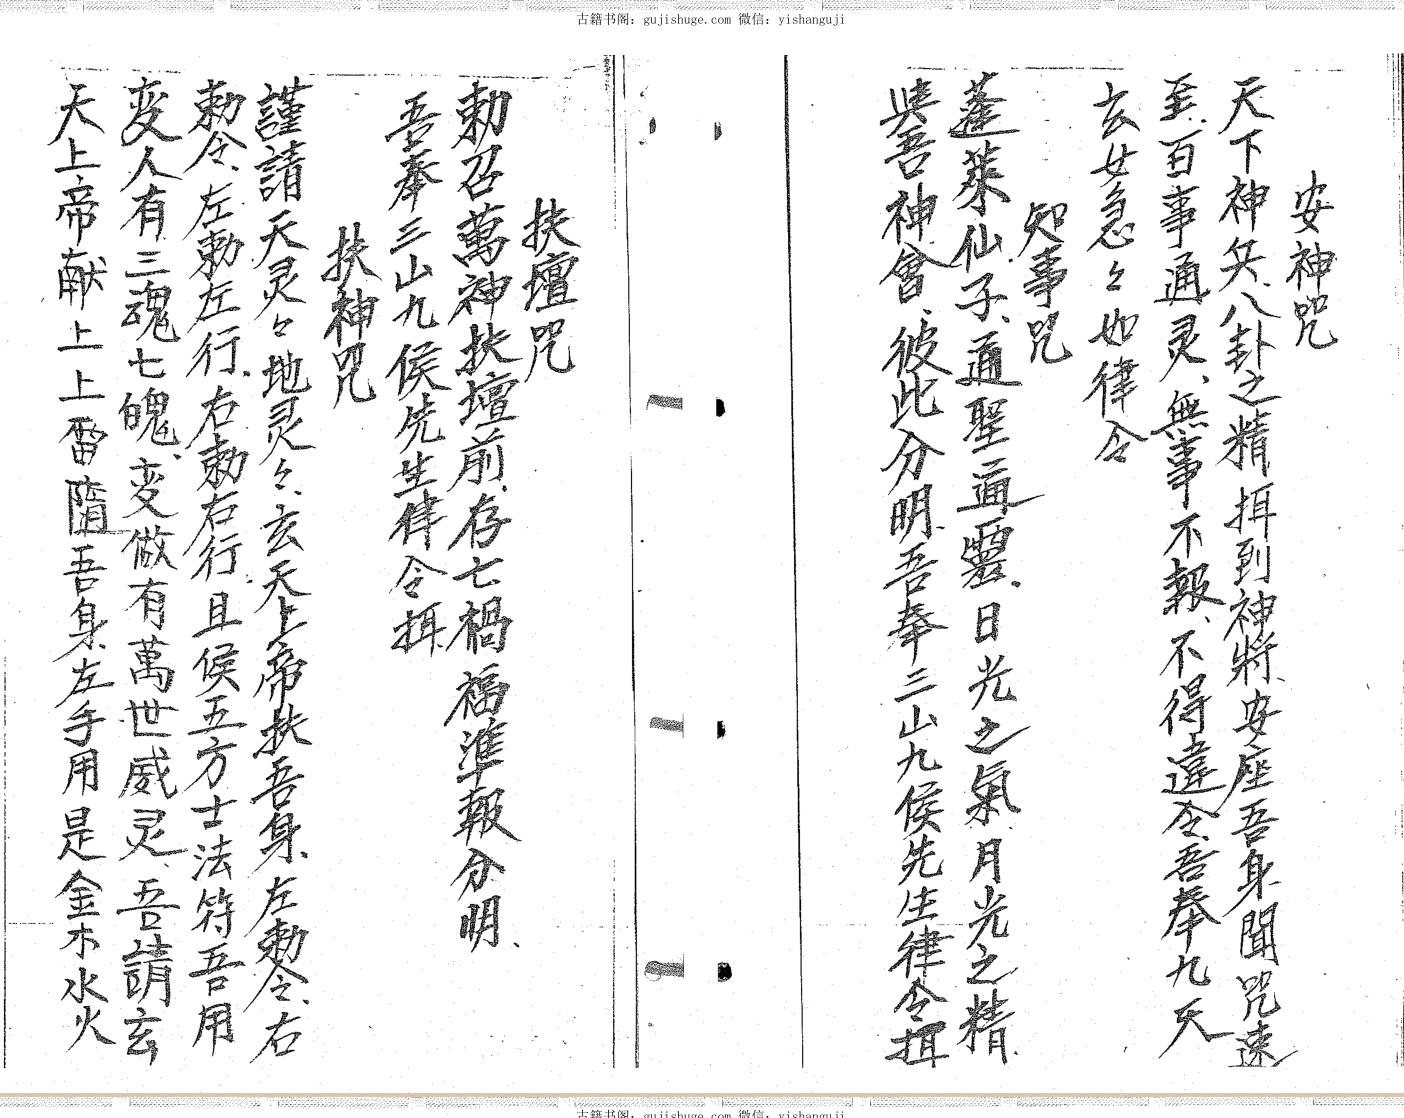 古籍书阁：gujishuge.com 微信：yishanguji
安神咒
天下神兵、八卦之精、挕到神將、安座吾身、聞咒速
至、百事通灵、無事不報、不得違令、吾奉九天
玄女急々如律令
知事咒
蓬萊仙子、通聖通靈、日光之氣、月光之精、
與吾神會、彼此分明、吾奉三山九侯先生律令挕
扶壇咒
勅召萬神扶壇前、存七禍福準報分明、
吾奉三山九侯先生律令挕
扶神咒
謹請天灵々地灵々、玄天上帝扶吾身、左勅令、右
勅令、左勅左行、右勅右行、且侯五方士法符吾用
变人有三魂七魄、变做有萬世威灵、吾請玄
天上帝献上上雷隨吾身、左手用是金木水火
古籍书阁：gujishuge.com 微信：yishanguji